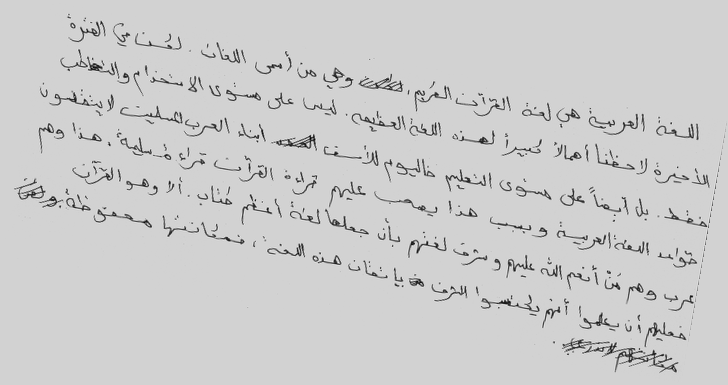 اللغة العربية هي لغة القرآن الكريم، وهي من أسمى اللغات. لكن في الفترة
الأخيرة لاحظنا أهمالاً كبيراً لهذه اللغة العظيمة. ليس على مستوى الاستخدام والتخاطب
فقط. بل أيضاً على مستوى التعليم فاليوم للأسف ابناء العرب المسلمين لا يتقنون
قواعد اللغة العربية وبسبب هذا يصعب عليهم قراءة القرآن قراءة سليمة. هذا وهم
عرب وهم مَنْ أنعم الله عليهم وشرف لغتهم بأن جعلها لغة أعظم كتاب. ألا وهو القرآن
فعليهم أن يعلموا أنهم يكتسبوا الشرف بإتقان هذه اللغة، فمكانتها محفوظة